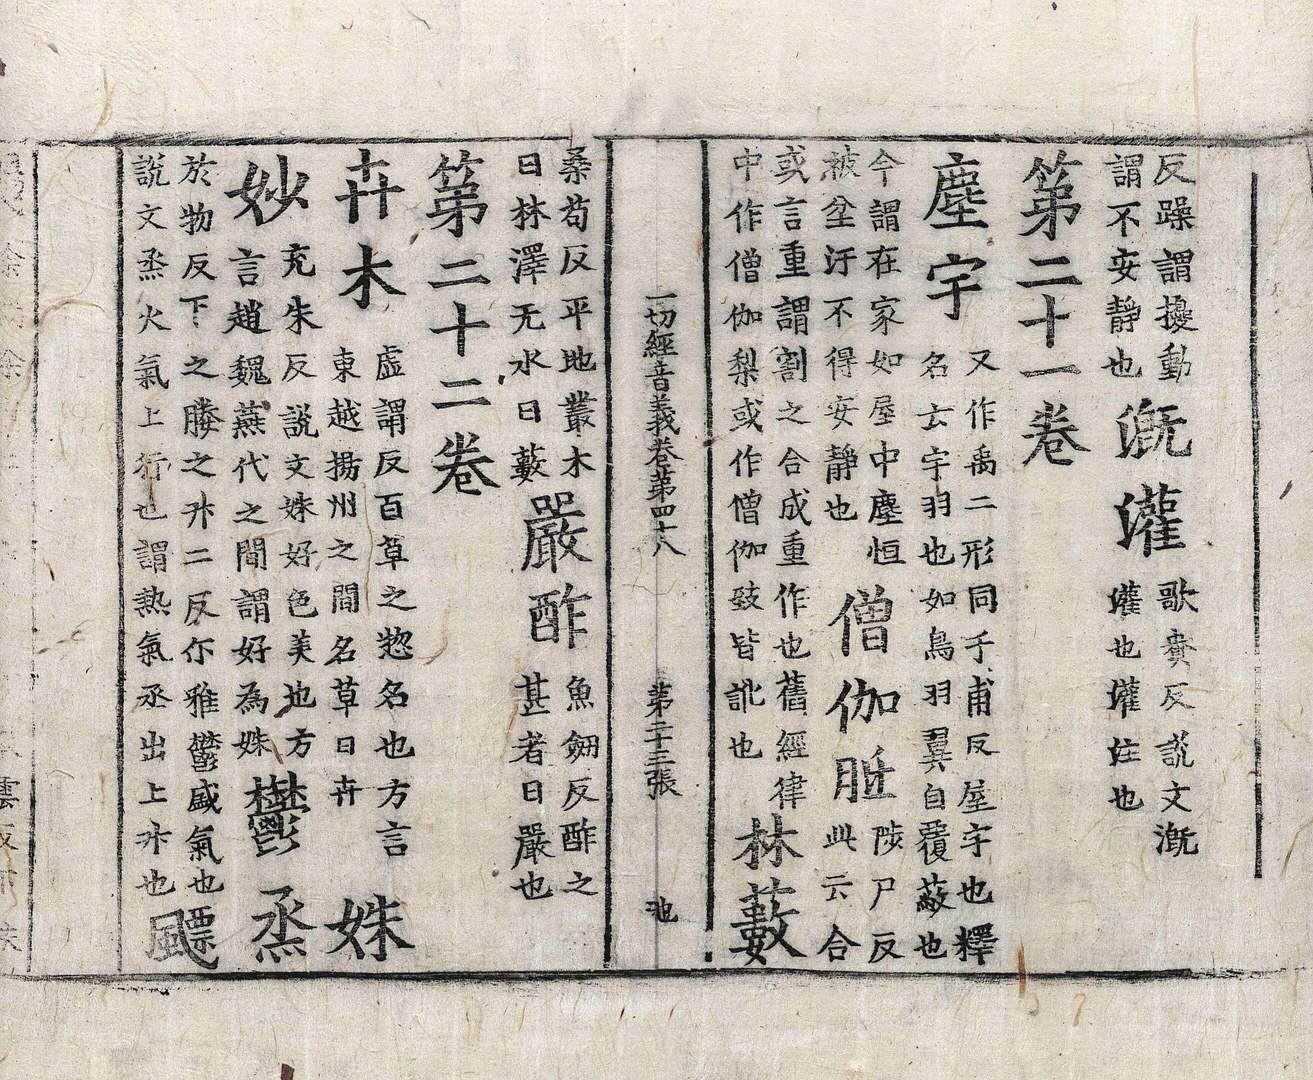 反躁謂擾動
謂不安靜也
溉灌
歌賚反說文溉
灌也灌注也
第二十一卷
塵宇
又作禹二形同于甫反屋宇也釋
名云宇羽也如鳥羽翼自覆蔽也
今謂在家如屋中塵恒
被坌汙不得安靜也
僧伽胝
陟尸反
此云合
或言重謂割之合成重作也舊經律
中作僧伽梨或作僧伽致皆訛也
林藪
一切經音義卷第四十八 第二十三張 池
桑苟反平地叢木
曰林澤无水曰藪
嚴酢
魚劒反酢之
甚者曰嚴也
第二十二卷
卉木
虛謂反百草之惣名也方言
東越揚州之間名草曰卉
姝
妙
充朱反說文姝好色美也方
言趙魏燕代之間謂好為姝
鬱烝
於物反下之媵之升二反尒雅鬱盛氣也
說文烝火氣上行也謂熱氣烝出上升也
飄